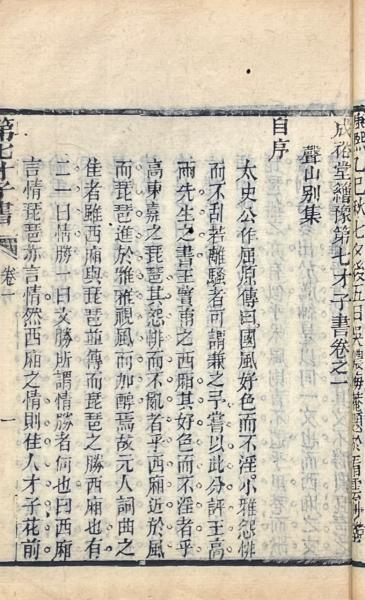 康熙乙巳秋七夕後五日吳儂悔菴題於青雲
成裕堂繪像第七才子書卷之一
聲山別集
自序
太史公作屈原傳曰國風好色而不淫小雅怨悱
而不亂若離騷者可謂兼之乎嘗以此分評王高
兩先生之書王實甫之西廂其好色而不淫者乎
高東嘉之琵琶其怨悱而不亂者乎西廂近於風
而琵琶進於雅雅視風而加醇焉故元人詞曲之
佳者雖西廂與琵琶並傳而琵琶之勝西廂也有
二一曰情勝一曰文勝所謂情勝者何也曰西廂
言情琵琶亦言情然西廂之情則佳人才子花前
第七才子書
卷一
一